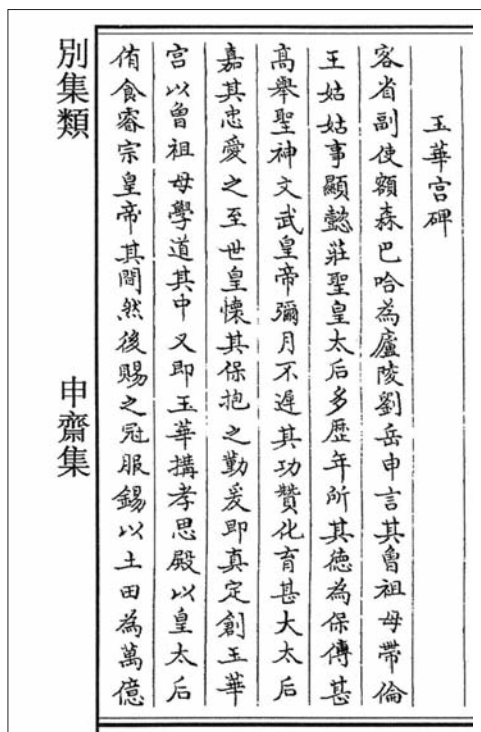 玉華宮碑
客省副使額森巴哈為廬陵劉岳申言其曾祖母帶倫
王姑姑事顯懿莊聖皇太后多歴年所其徳為保傅甚
高舉聖神文武皇帝彌月不遲其功贊化育甚大太后
嘉其忠愛之至世皇懷其保抱之勤爰即真定創玉華
宮以曾祖母學道其中又即玉華搆孝思殿以皇太后
侑食睿宗皇帝其間然後賜之冠服錫以土田為萬億
別集類
申齋集